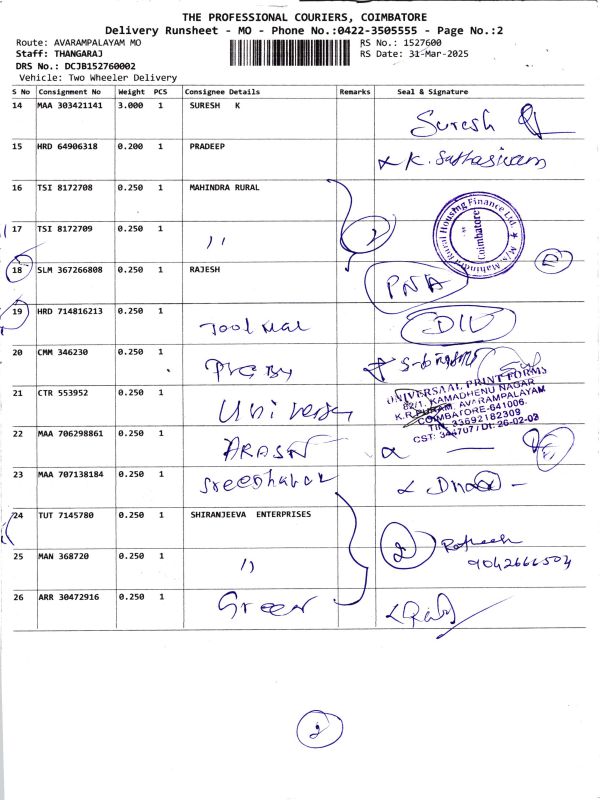 THE PROFESSIONAL COURIERS, COIMBATORE
Delivery Runsheet - MO - Phone No.:0422-3505555 - Page No.:2
Route: AVARAMPALAYAM MO RS No.: 1527600
Staff: THANGARAJ RS Date: 31-Mar-2025
DRS No.: DCJB152760002
Vehicle: Two Wheeler Delivery
S No Consignment No Weight PCS Consignee Details Remarks Seal & Signature
14 MAA 303421141 3.000 1 SURESH K Suresh
15 HRD 64906318 0.200 1 PRADEEP
16 TSI 8172708 0.250 1 MAHINDRA RURAL
M/s. Mahindra Rural Housing Finance Ltd. ★ Coimbatore
17 TSI 8172709 0.250 1 ,, 2
18 SLM 367266808 0.250 1 RAJESH PNA
19 HRD 714816213 0.250 1
20 CMM 346230 0.250 1
UNIVERSAAL PRINT FORMS
62/1, KAMADHENU NAGAR
K.R.PURAM, AVARAMPALAYAM
COIMBATORE-641006.
TIN: 33692182309
CST: 344707 / Dt: 26-02-03
21 CTR 553952 0.250 1
22 MAA 706298861 0.250 1
23 MAA 707138184 0.250 1
24 TUT 7145780 0.250 1 SHIRANJEEVA ENTERPRISES 2
25 MAN 368720 0.250 1 ,,
26 ARR 30472916 0.250 1
2